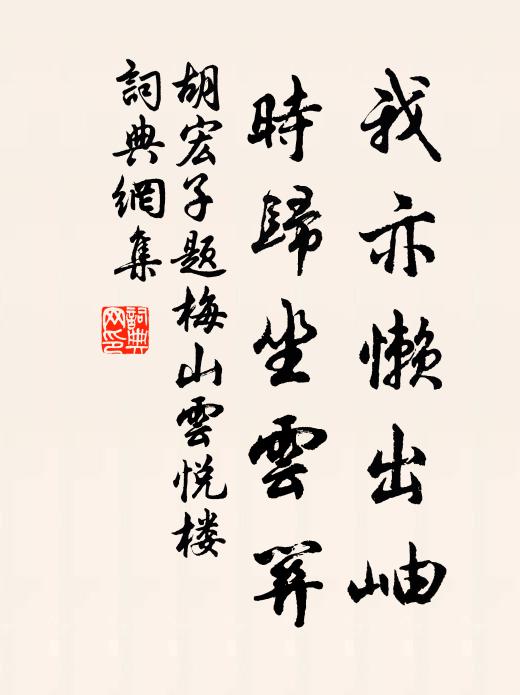 我亦懒出岫
時歸坐雲関
胡宏子题梅山雲悦楼
詞典網集
詞典网印